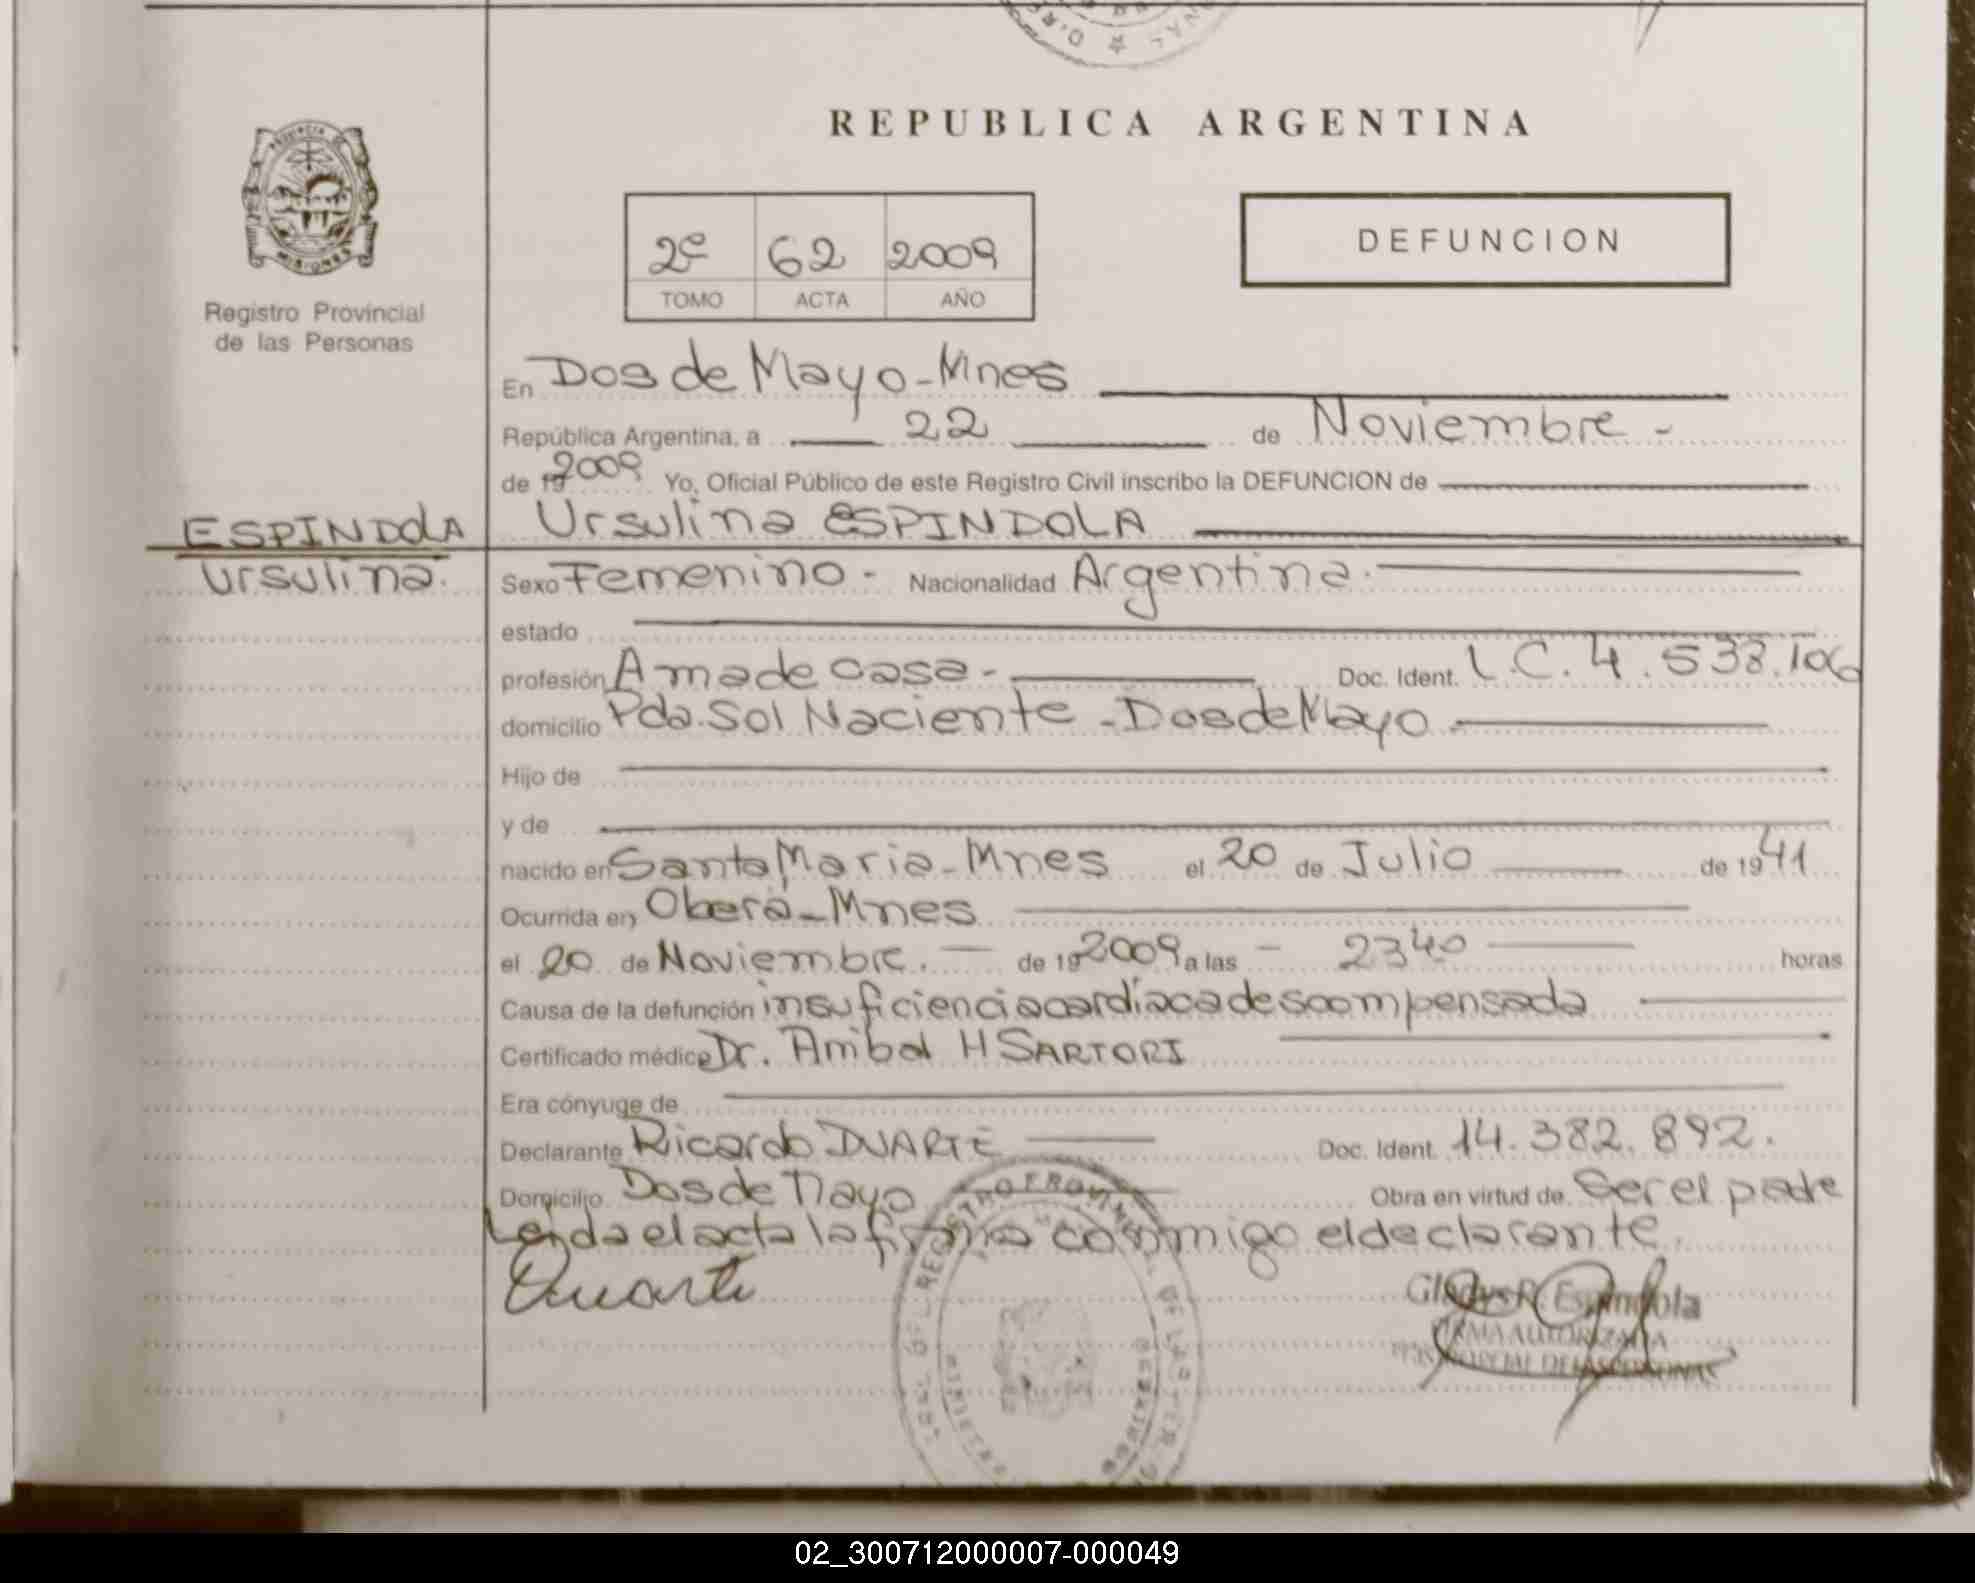 REPUBLICA ARGENTINA
PROVINCIA DE
MISIONES
Registro Provincial
de las Personas
2º 62 2009
TOMO ACTA AÑO
DEFUNCION
En Dos de Mayo - Mnes
República Argentina, a 22 de Noviembre -
de 19 2009 Yo, Oficial Público de este Registro Civil inscribo la DEFUNCION de
ESPINDOLA
Ursulina.
Ursulina ESPINDOLA
Sexo Femenino - Nacionalidad Argentina.
estado
profesión Ama de casa - Doc. Ident. L.C. 4.538.106
domicilio Pda. Sol Naciente - Dos de Mayo
Hijo de
y de
nacido en Santa Maria - Mnes el 20 de Julio de 1941
Ocurrida en Oberá - Mnes
el 20 de Noviembre. de 19 2009 a las - 2340 horas
Causa de la defunción insuficiencia cardíaca descompensada
Certificado médico Dr. Anibal H SARTORI
Era cónyuge de
Declarante Ricardo DUARTE Doc. Ident. 14.382.892.
Domicilio Dos de Mayo Obra en virtud de Ser el
Leida el acta la firma conmigo el declarante.
Duarte
Gladys R. Espindola
FIRMA AUTORIZADA
02_300712000007-000049